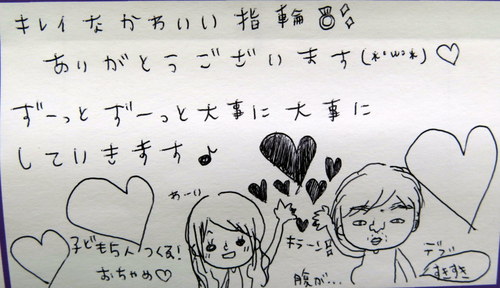 キレイなかわいい指輪
ありがとうございます(*'ω'*)♡
ずーっとずーっと大事に大事に
していきます♪
わーい
キラーン
子どもちん つくる!
おちゃめ♡
腹が...
デブ
すきすき